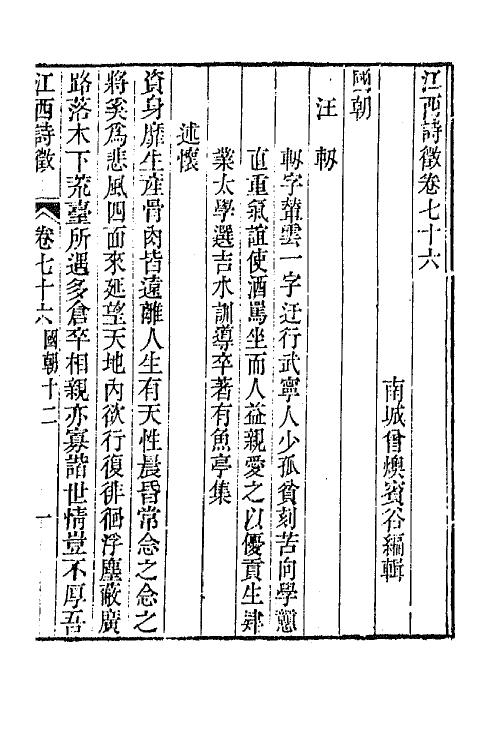 江西詩徵卷七十六
南城曾燠賓谷編輯
國朝
汪軔
軔字輦雲一字迂行武寧人少孤貧刻苦向學戇
直重氣誼使酒罵坐而人益親愛之以優貢生肄
業太學選吉水訓導卒著有魚亭集
述懷
資身靡生產骨肉皆遠離人生有天性晨昏常念之念之
將奚為悲風四面來延望天地內欲行復徘徊浮塵蔽廣
路落木下荒臺所遇多倉卒相親亦寡諧世情豈不厚吾
江西詩徵
卷七十六 國朝十二
一